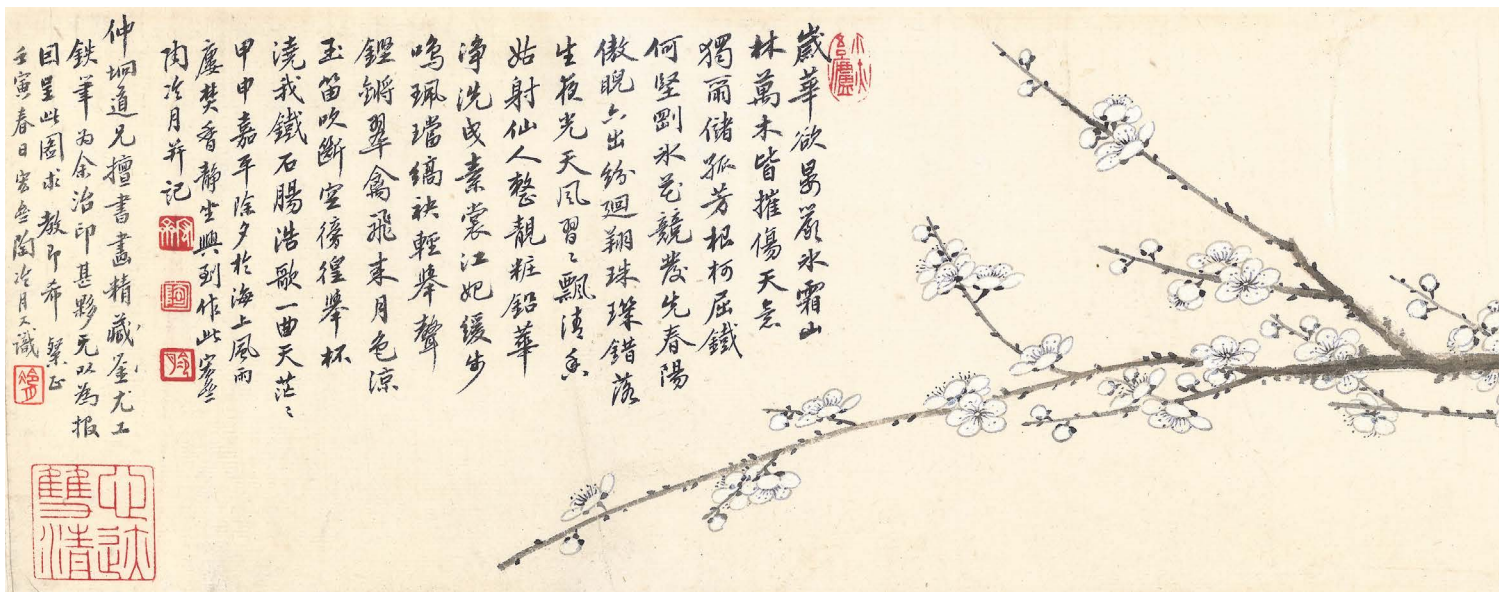 歲華欲晏嚴冰霜山
林萬木皆摧傷天意
獨爾儲孤芳根柯屈鐵
何堅剛冰花競發先春陽
傲睨六出紛迴翔珠琛錯落
生夜光天風習〻飄清香
姑射仙人整靚粧鉛華
淨洗曳素裳江妃緩步
鳴珮璫縞袂輕舉聲
鏗鏘翠禽飛來月色涼
玉笛吹斷空徬徨舉杯
澆我鐵石腸浩歌一曲天茫〻
甲申嘉平除夕於海上風雨
廔焚香靜坐興到作此宏
陶冷月并記
仲坰道兄擅書畫精藏鑒尤工
鉄筆為余治印甚夥無以為報
因呈此圖求教即希 鑒正
壬寅春日宏陶冷月又識
雙清